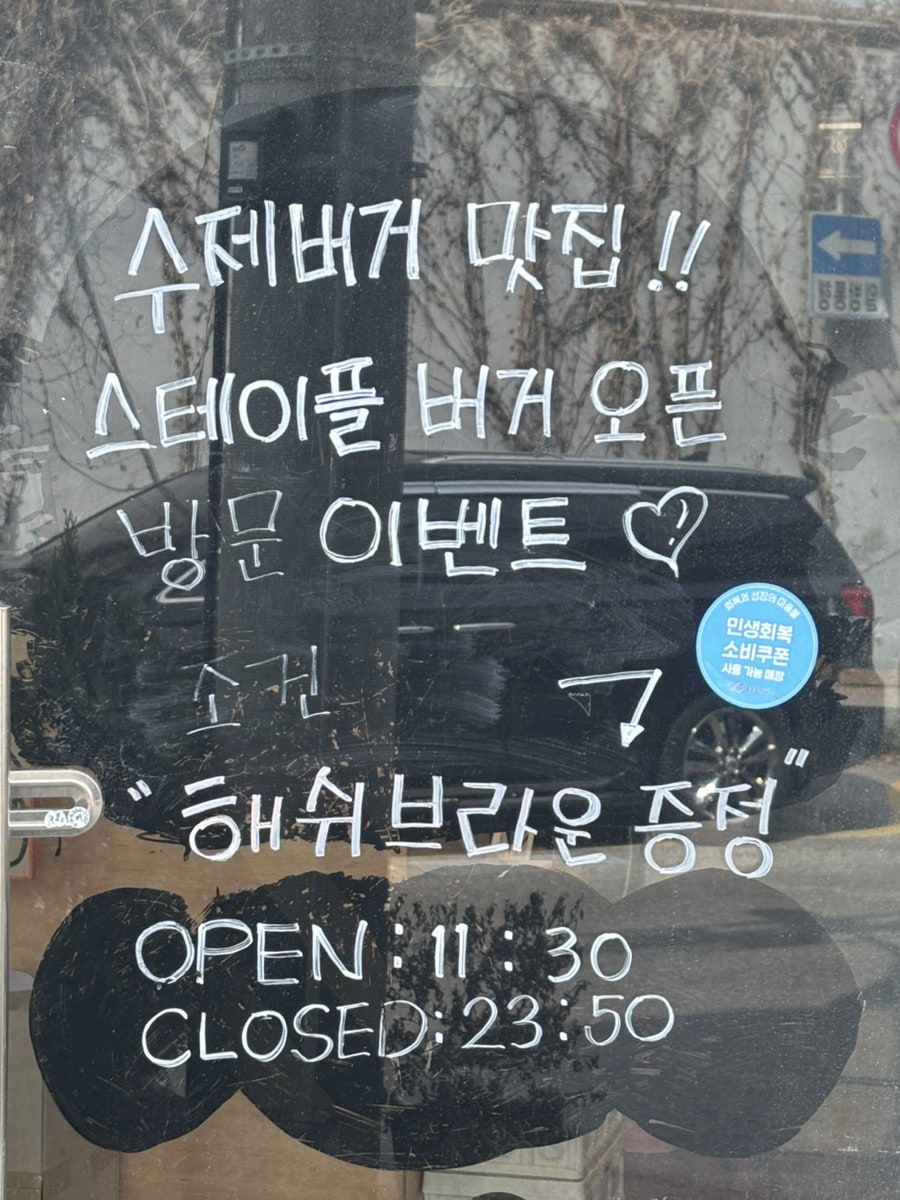 수제버거 맛집!!
스테이플 버거 오픈
방문 이벤트♡
조건
"해쉬브라운 증정"
OPEN:11:30
CLOSED:23:50
회복과 성장의 마중물
민생회복
소비쿠폰
사용 가능 매장